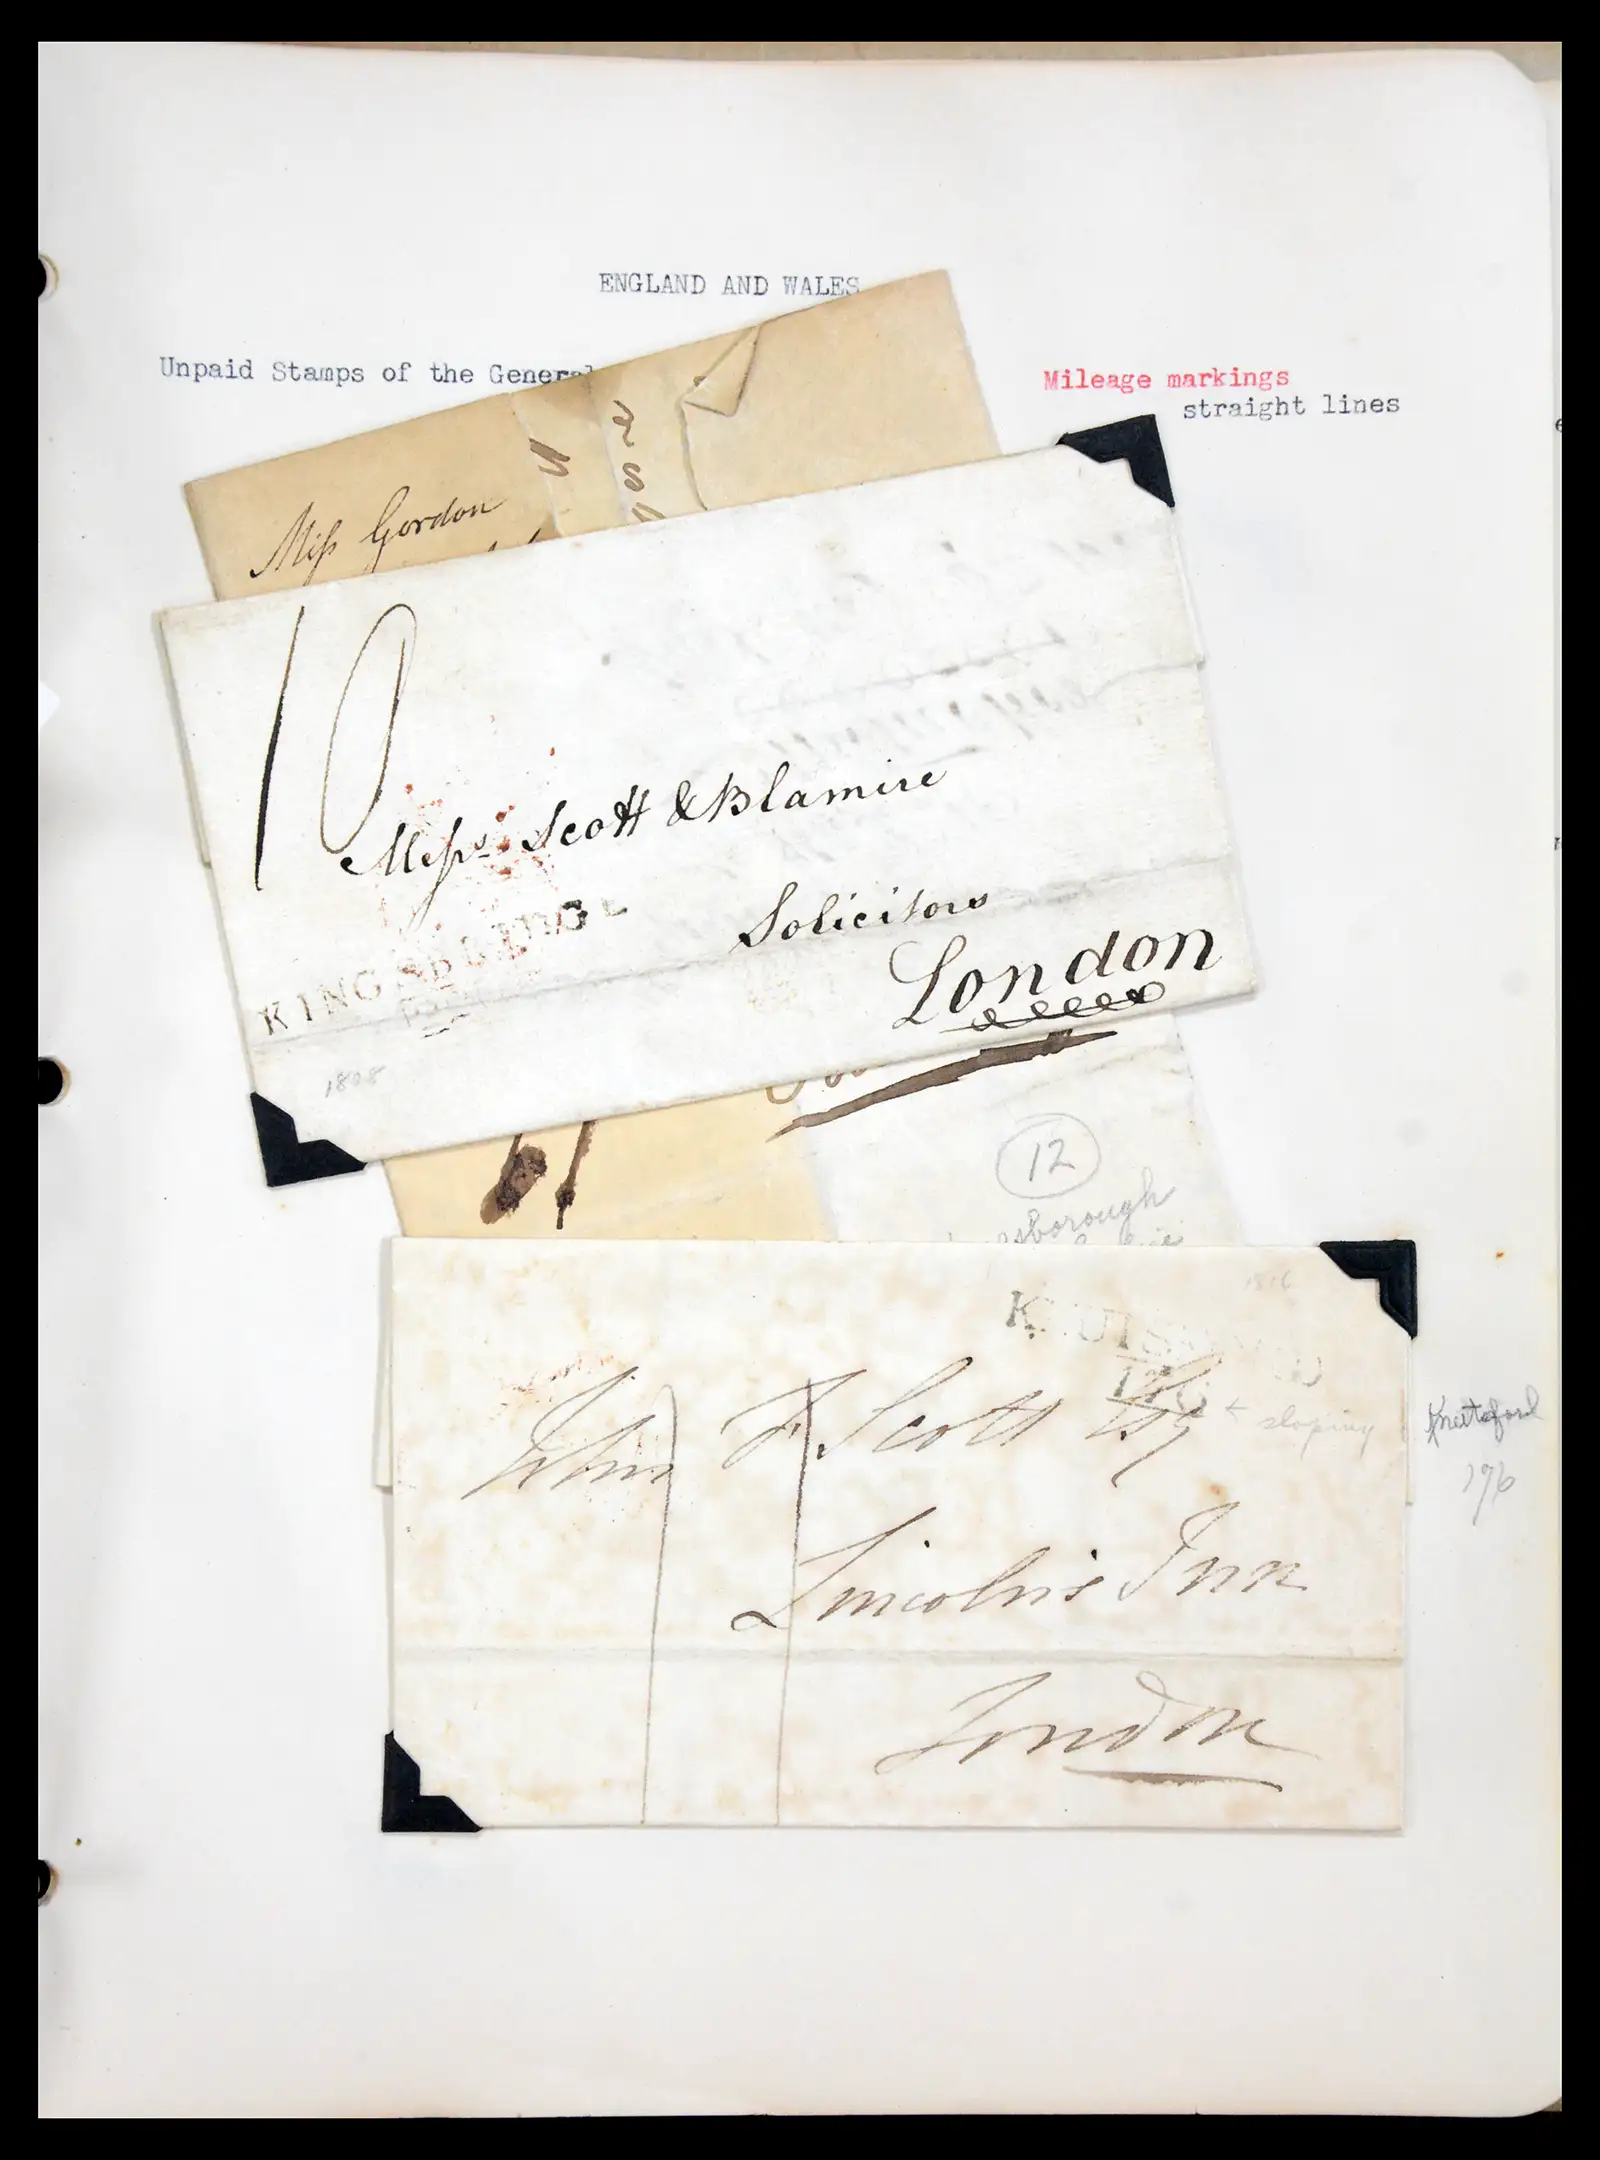 ENGLAND AND WALES
Unpaid Stamps of the General
Mileage markings
straight lines
Miſs Gordon
10
Meſsrs Scott & Blamire
Solicitors
London
KINGSBRIDGE
1808
12
esborough
1816
KNUTSFORD
176
← sloping
John F Scott Esq
Lincoln's Inn
London
Knutsford
176